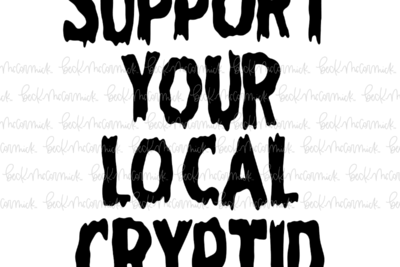 SUPPORT
YOUR
LOCAL
CRYPTID